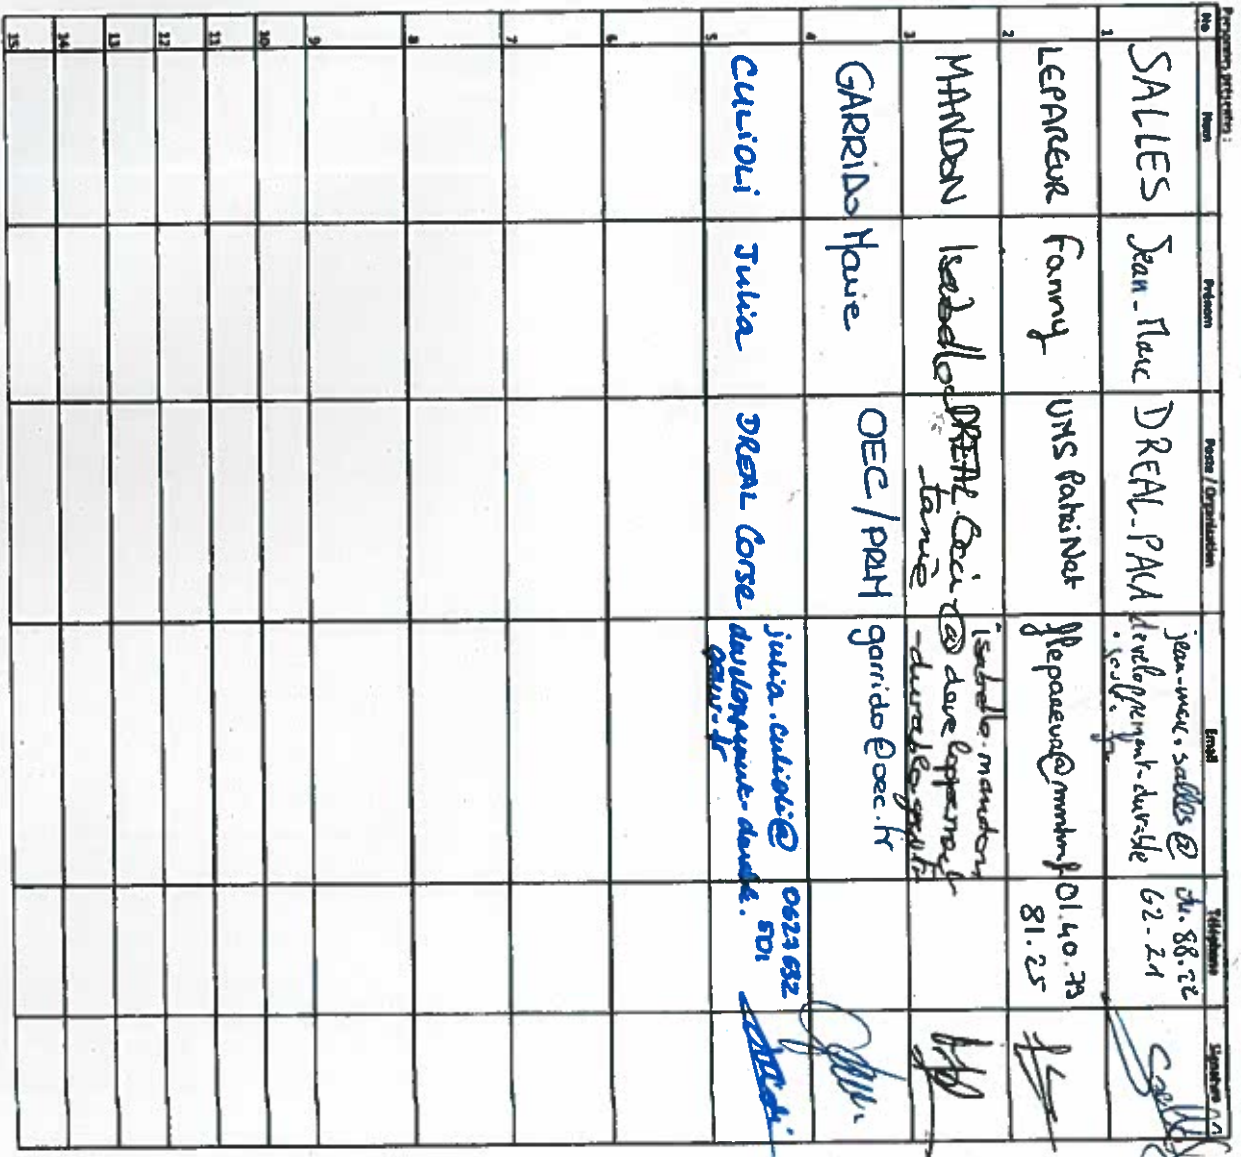 Personnes présentes :
No Nom Prénom Poste / Organisation Email Téléphone Signature
1 SALLES Jean-Marc DREAL-PACA jean-marc.salles@ 88.22
developpement-durable 62-21
2 LEPAREUR Fanny UMS PatriNat flepareur@mnhn.fr 01.40.79
81.25
3 MANDON Isabelle DREAL Occi isabelle.mandon
tanie @ developpement
-durable.gouv.fr
4 GARRIDO Marie OEC/PRLM garrido@oec.fr
5 CULIOLI Julia DREAL Corse julia.culioli@ 0627 632
developpement-durable. 501
gouv.fr
6
7
8
9
10
11
12
13
14
15